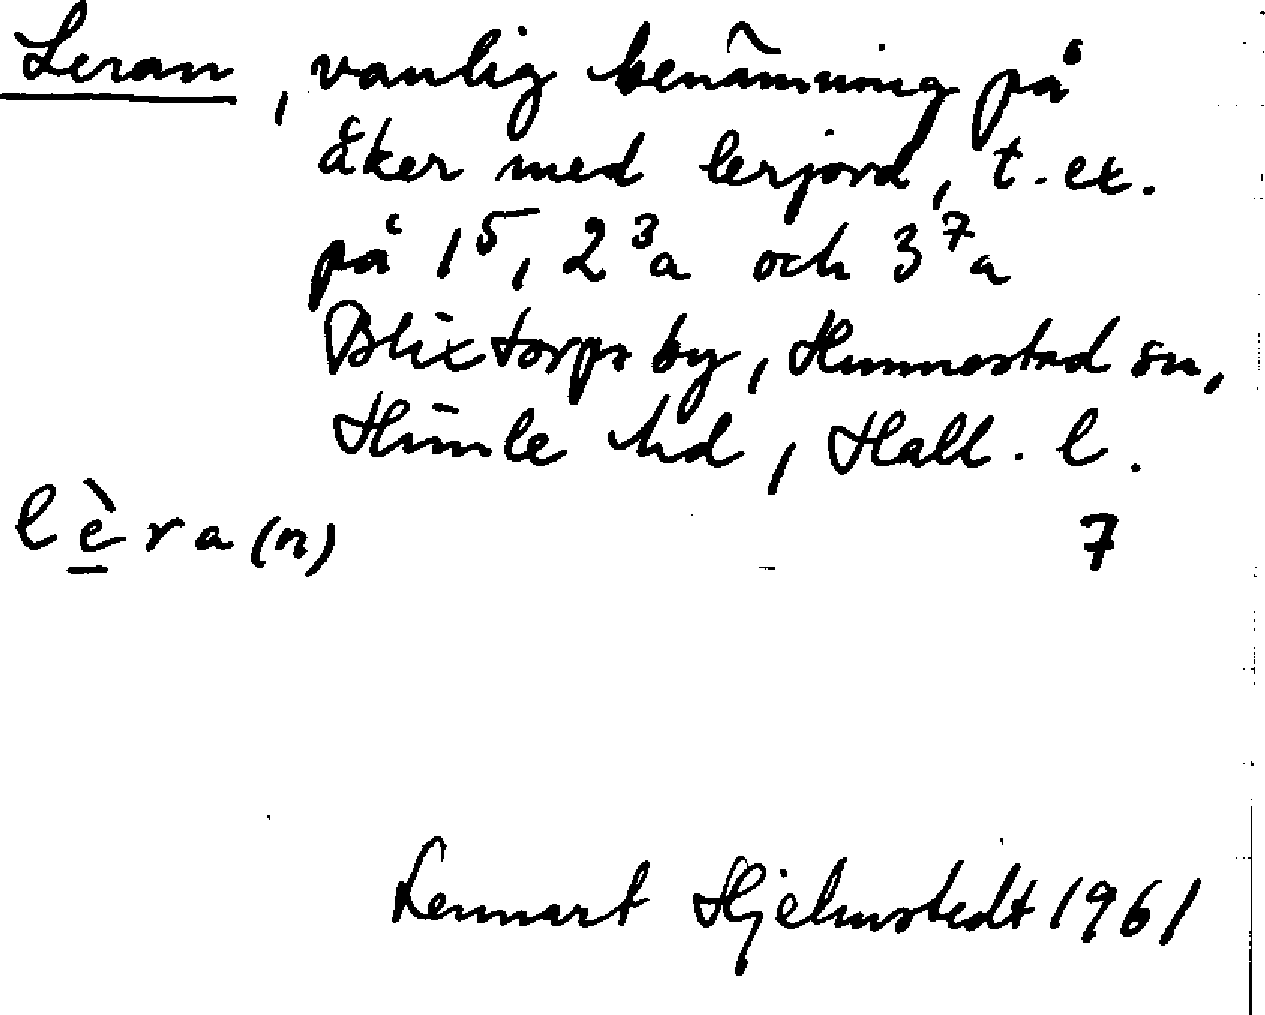 Leran, vanlig benämning på
åker med lerjord, t.ex.
på 1⁵, 2³a och 3⁷a
Blixtorps by, Hunnestad sn,
Himle hd, Hall. l.
lè̱ra(n) 7
Lennart Hjelmstedt 1961